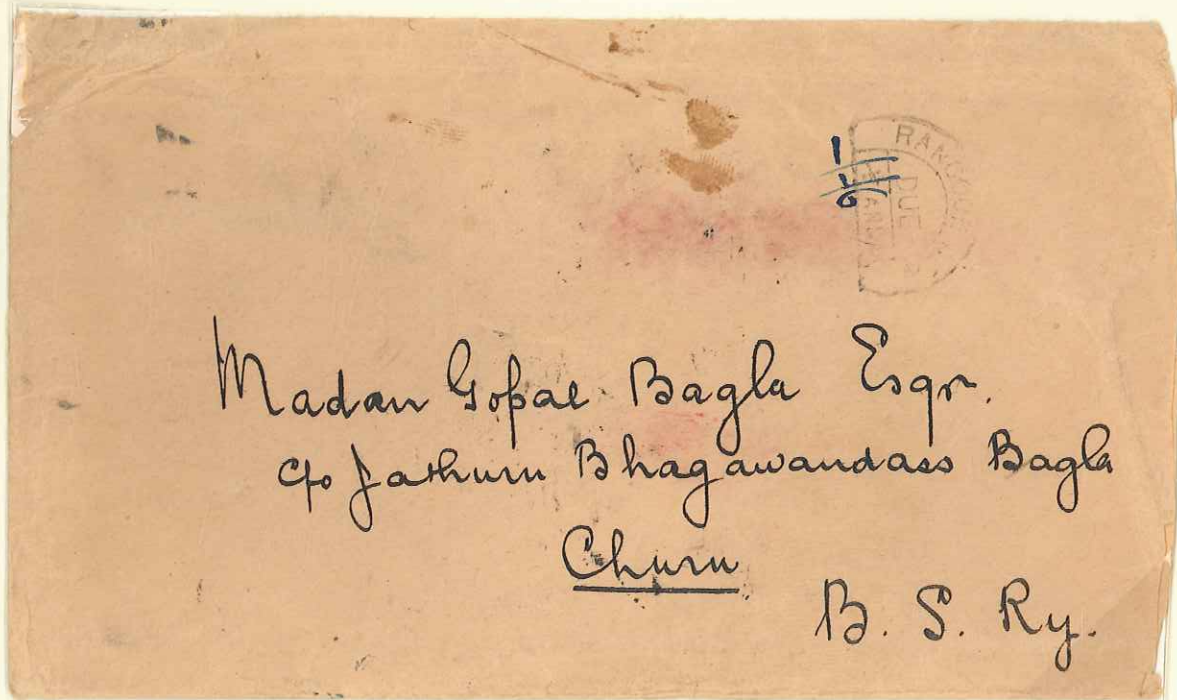 RANGOON
DUE
Madan Gopal Bagla Esqr.
c/o Jathuru Bhagawandass Bagla
Churu
B. S. Ry.